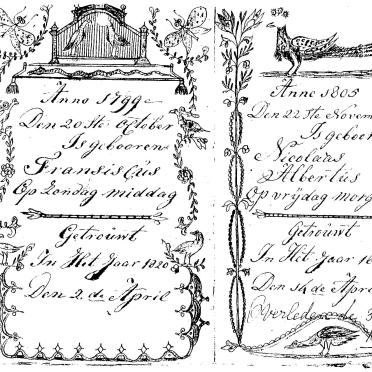 Anno 1799
Den 20 Ste October
Is gebooren
Fransiscús
Op Zondag middag
Getroúwt
In Hét Jaar 1820
Den 2 de April
Anne 1805
Den 22 Ste Novem
Is geboor
Nicolaus
Albertús
Op vrÿdag morg
Getroúwt
In Hét Jaar
Den 14 de Apri